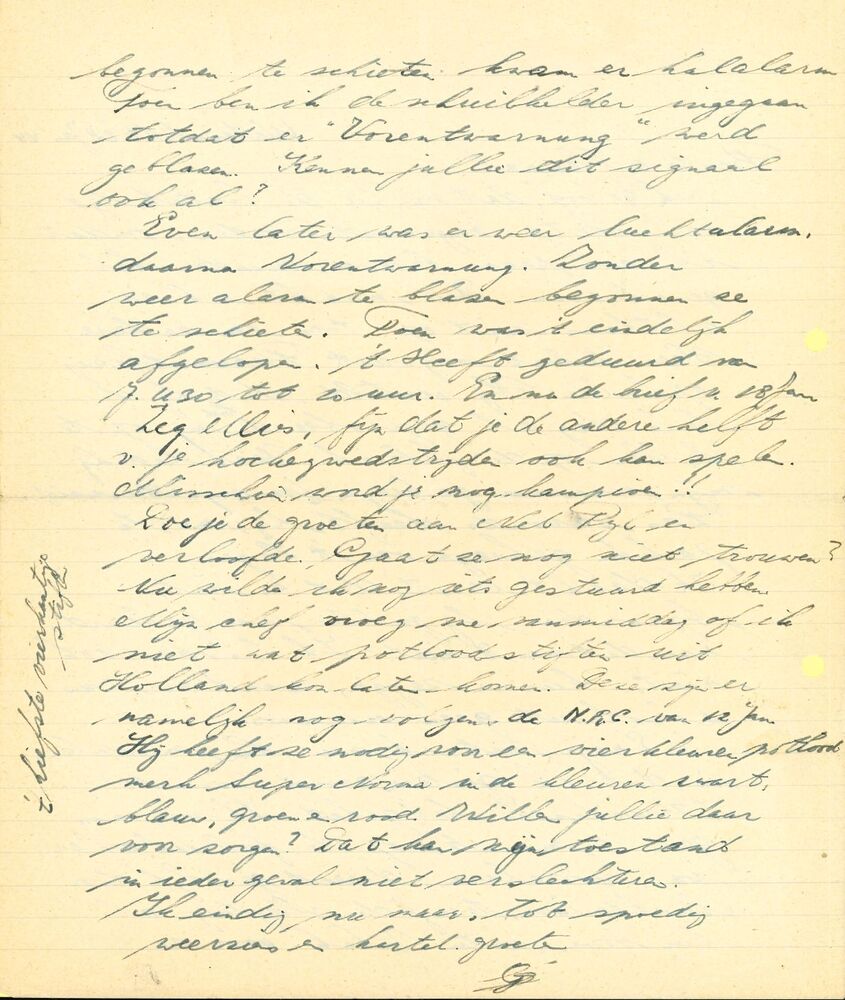 begonnen te schieten kwam er halalarm
Toen ben ik de schuilkelder ingegaan
totdat er "Vorentwarnung" werd
geblazen. Kennen jullie dit signaal
ook al?
Even later was er weer luchtalarm,
daarna Vorentwarnung. Zonder
weer alarm te blazen begonnen ze
te schieten. Toen was 't eindelijk
afgelopen. 't Heeft geduurd van
7.u30 tot 10 uur. En nu de brief v. 18 Jan
Zeg Mies, fijn dat je de andere helft
v. je hockeywedstrijden ook kan spelen.
Misschien word je nog kampioen!!
Doe je de groeten aan Neb en
verloofde. Gaat ze nog niet trouwen?
Nu wilde ik nog iets gestuurd hebben.
Mijn chef vroeg me vanmiddag of ik
niet wat potloodstiften uit
Holland kon laten komen. Deze zijn er
namelijk nog volgens de N.R.C. van 12 Jan
Hij heeft ze nodig voor een vierkleuren potlood
merk Super Norma in de kleuren zwart,
blauw, groen e rood. Willen jullie daar
voor zorgen? Dat kan mijn toestand
in ieder geval niet verslechteren.
Ik eindig nu maar, tot spoedig
weerziens en hartel. groeten
't liefste vierkantje
stiften